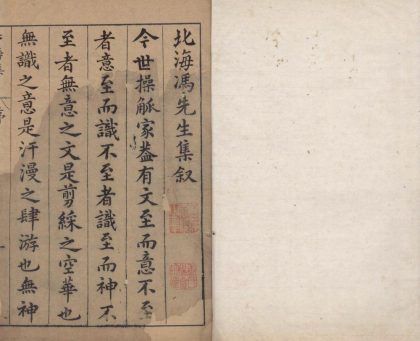 北海馮先生集叙
今世操觚家葢有文至而意不至
者意至而識不至者識至而神不
至者無意之文是剪綵之空華也
無識之意是汗漫之肆游也無神